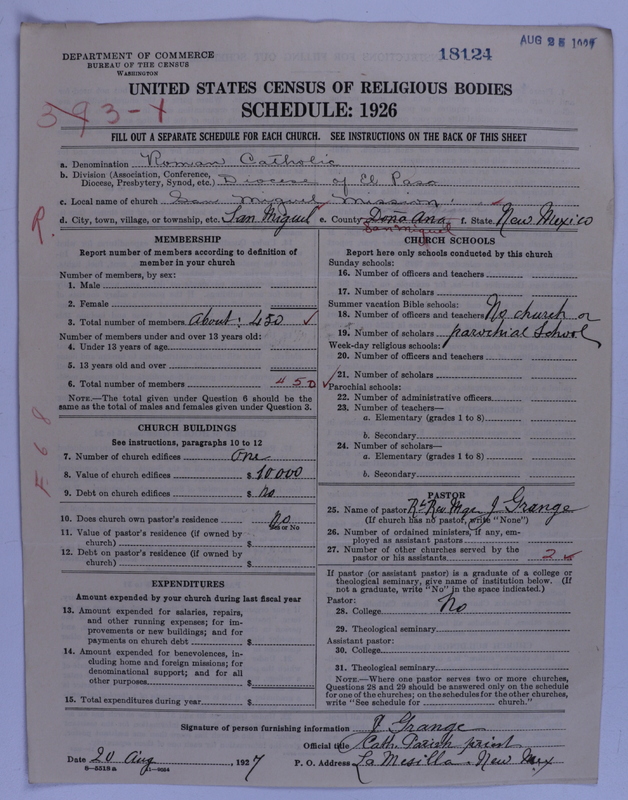 DEPARTMENT OF COMMERCE
BUREAU OF THE CENSUS
WASHINGTON
18124
AUG 25 1927
UNITED STATES CENSUS OF RELIGIOUS BODIES
SCHEDULE: 1926
593-1
FILL OUT A SEPARATE SCHEDULE FOR EACH CHURCH. SEE INSTRUCTIONS ON THE BACK OF THIS SHEET
a. Denomination Roman Catholic
b. Division (Association, Conference, Diocese, Presbytery, Synod, etc.) Diocese of El Paso
c. Local name of church San Miguel Mission
d. City, town, village, or township, etc. San Miguel e. County Doña Ana f. State New Mexico
San Miguel
R.
568
MEMBERSHIP
Report number of members according to definition of
member in your church
Number of members, by sex:
1. Male
2. Female
3. Total number of members About: 450
Number of members under and over 13 years old:
4. Under 13 years of age
5. 13 years old and over
6. Total number of members 450
NOTE.—The total given under Question 6 should be
same as the total of males and females given under Question 3.
CHURCH BUILDINGS
See instructions, paragraphs 10 to 12
7. Number of church edifices One
8. Value of church edifices $ 10.000
9. Debt on church edifices $ No
10. Does church own pastor's residence No
Yes or No
11. Value of pastor's residence (if owned by
church) $
12. Debt on pastor's residence (if owned by
church) $
EXPENDITURES
Amount expended by your church during last fiscal year
13. Amount expended for salaries, repairs,
and other running expenses; for im-
provements or new buildings; and for
payments on church debt $
14. Amount expended for benevolences, in-
cluding home and foreign missions; for
denominational support; and for all
other purposes $
15. Total expenditures during year $
CHURCH SCHOOLS
Report here only schools conducted by this church
Sunday schools:
16. Number of officers and teachers
17. Number of scholars
Summer vacation Bible schools:
18. Number of officers and teachers No church or
19. Number of scholars parochial School
Week-day religious schools:
20. Number of officers and teachers
21. Number of scholars
Parochial schools:
22. Number of administrative officers
23. Number of teachers—
a. Elementary (grades 1 to 8)
b. Secondary
24. Number of scholars—
a. Elementary (grades 1 to 8)
b. Secondary
PASTOR
25. Name of pastor Rt Rev Mgr J Grange
(If church has no pastor, write "None")
26. Number of ordained ministers, if any, em-
ployed as assistant pastors
27. Number of other churches served by the
pastor or his assistants
If pastor (or assistant pastor) is a graduate of a college or
theological seminary, give name of institution below. (If
not a graduate, write "No" in the space indicated.)
Pastor:
28. College No
29. Theological seminary
Assistant pastor:
30. College
31. Theological seminary
NOTE.—Where one pastor serves two or more churches,
Questions 28 and 29 should be answered only on the schedule
for one of the churches; on the schedules for the other churches,
write "See schedule for church."
Signature of person furnishing information J Grange
Official title Cath. Parish priest
Date 20 Aug, 1927 P. O. Address La Mesilla. New Mex
8—5518a 11—9054